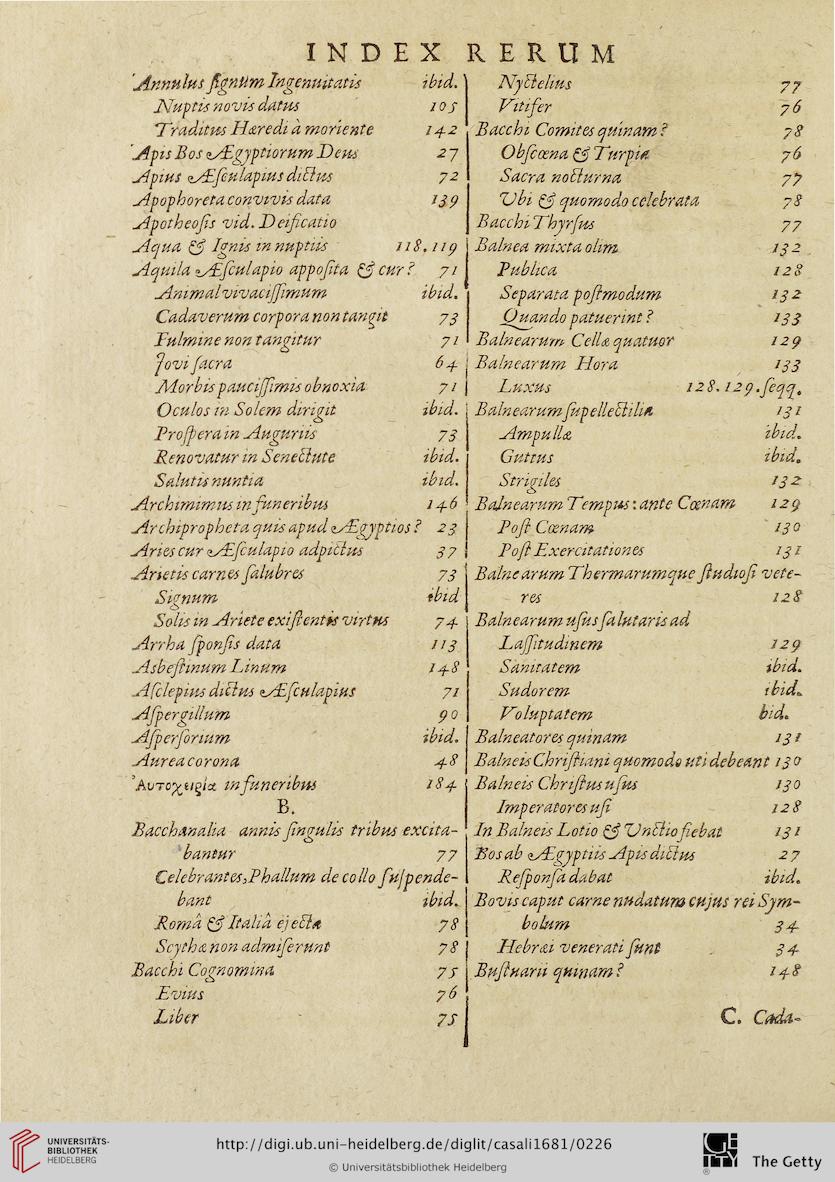 INDEX RERUM
Annulus ſignum Ingenuitatis ibid.
Nuptis novis datus 105
Traditus Hæredi à moriente 142
Apis Bos Ægyptiorum Deus 27
Apius Æſculapius dictus 72
Apophoreta convivis data 139
Apotheoſis vid. Deificatio
Aqua & Ignis in nuptiis 118.119
Aquila Æſculapio appoſita & cur? 71
Animal vivaciſſimum ibid.
Cadaverum corpora non tangit 73
Fulmine non tangitur 71
Jovi ſacra 64
Morbis pauciſſimis obnoxia 71
Oculos in Solem dirigit ibid.
Proſpera in Auguriis 73
Renovatur in Senectute ibid.
Salutis nuntia ibid.
Archimimus in funeribus 146
Archipropheta quis apud Ægyptios? 23
Aries cur Æſculapio adpictus 37
Arietis carnes ſalubres 73
Signum ibid
Solis in Ariete exiſtentis virtus 74
Arrha ſponſis data 113
Asbeſtinum Linum 148
Aſclepius dictus Æſculapius 71
Aſpergillum 90
Aſperſorium ibid.
Aurea corona 48
Αυτοχειρία in funeribus 184
B.
Bacchanalia annis ſingulis tribus excita-
bantur 77
Celebrantes, Phallum de collo ſuſpende-
bant ibid.
Româ & Italiâ ejecta 78
Scythæ non admiſerunt 78
Bacchi Cognomina 75
Evius 76
Liber 75
Nyctelius 77
Vitifer 76
Bacchi Comites quinam? 78
Obſcœna & Turpia 76
Sacra nocturna 77
Ubi & quomodo celebrata 78
Bacchi Thyrſus 77
Balnea mixta olim 132
Publica 128
Separata poſtmodum 132
Quando patuerint? 133
Balnearum Cellæ quatuor 129
Balnearum Hora 133
Luxus 128.129.ſeqq.
Balnearum ſupellectilia 131
Ampullæ ibid.
Guttus ibid.
Strigiles 132
Balnearum Tempus: ante Cœnam 129
Poſt Cœnam 130
Poſt Exercitationes 131
Balnearum Thermarumque ſtudioſi vete-
res 128
Balnearum uſus ſalutaris ad
Laſſitudinem 129
Sanitatem ibid.
Sudorem ibid.
Voluptatem bid.
Balneatores quinam 131
Balneis Chriſtiani quomodo uti debeant 130
Balneis Chriſtus uſus 130
Imperatores uſi 128
In Balneis Lotio & Unctio fiebat 131
Bos ab Ægyptiis Apis dictus 27
Reſponſa dabat ibid.
Bovis caput carne nudatum cujus rei Sym-
bolum 34
Hebræi venerati ſunt 34
Buſtuarii quinam? 148
C. Cada-
UNIVERSITÄTS-
BIBLIOTHEK
HEIDELBERG
http://digi.ub.uni-heidelberg.de/diglit/casali1681/0226
© Universitätsbibliothek Heidelberg
The Getty